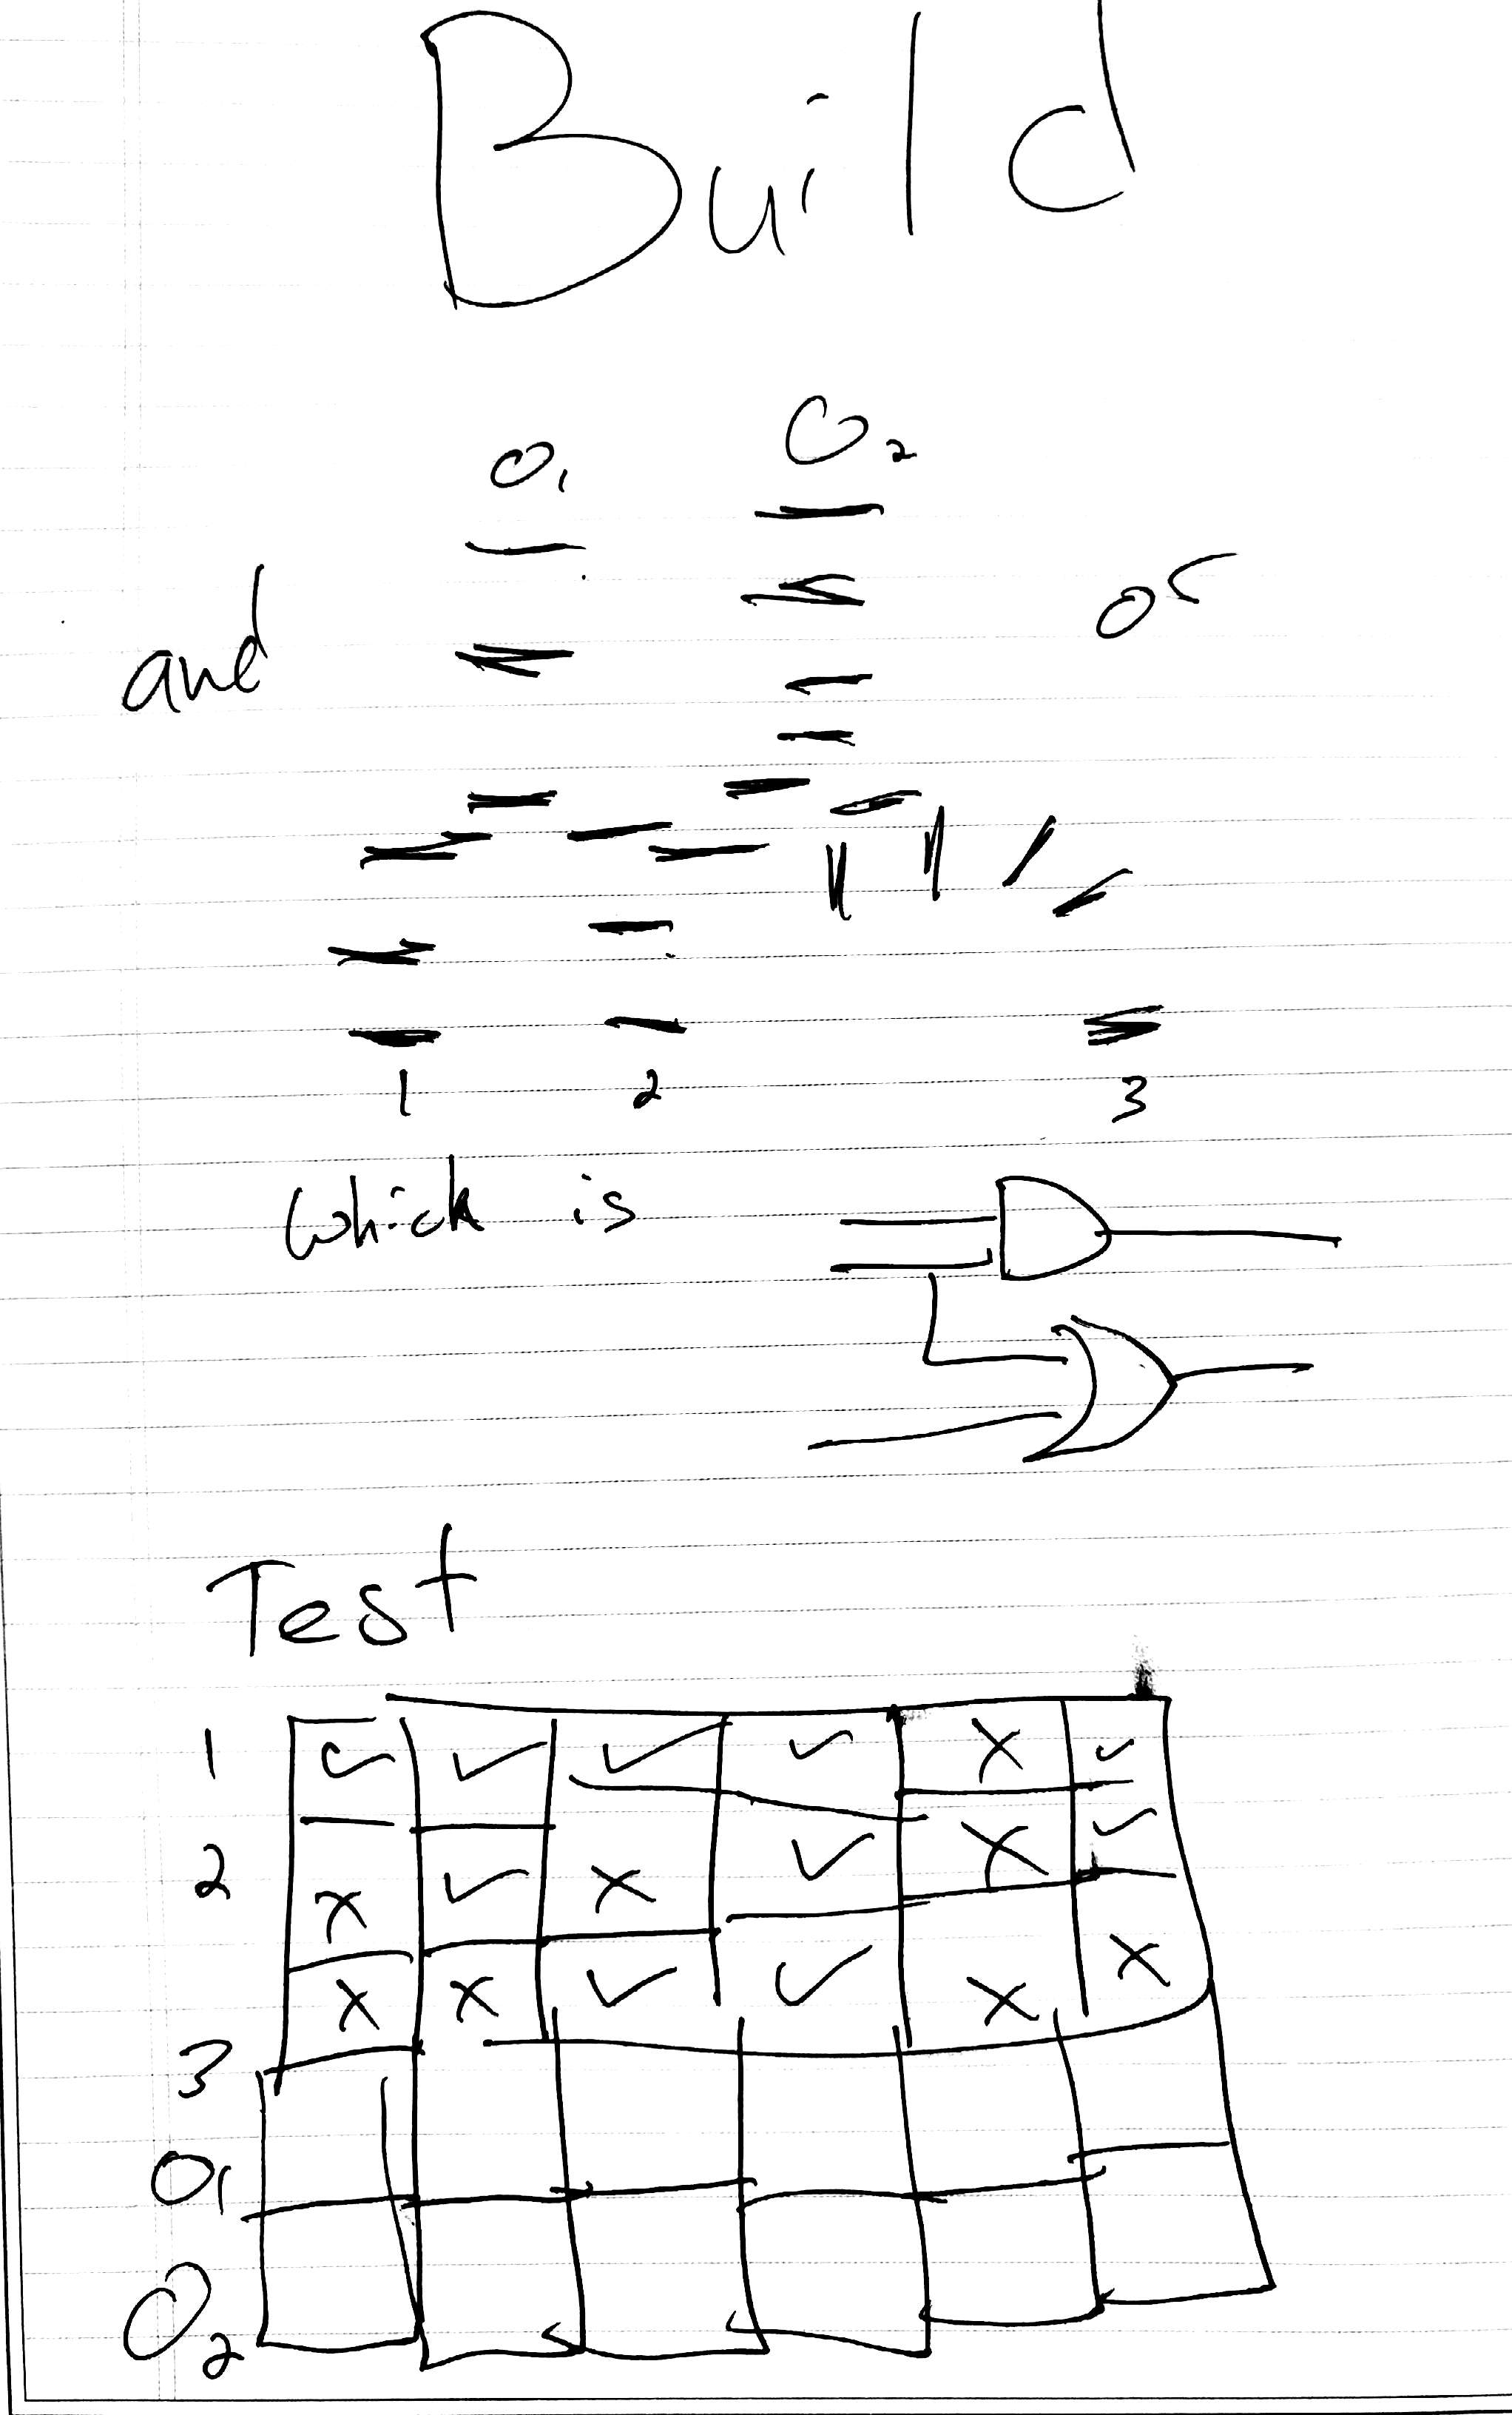 Build
O₁ O₂
and or
1 2 3
which is
Test
1 ✓ ✓ ✓ ✓ × ✓
2 × ✓ × ✓ × ✓
3 × × ✓ ✓ × ×
O₁
O₂